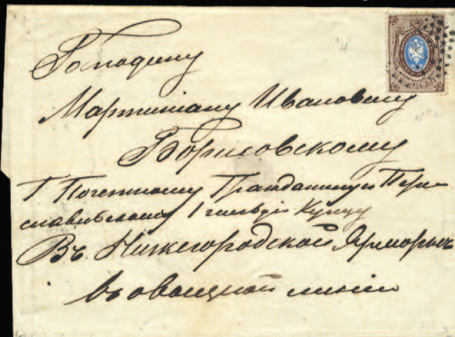 Господину
Мартиніану Ивановичу
Борисовскому
Г. Почетному Гражданину и Пере-
славльскому 1 гильдіи Купцу
Въ Нижегородской Ярморкѣ
въ овощной линіи